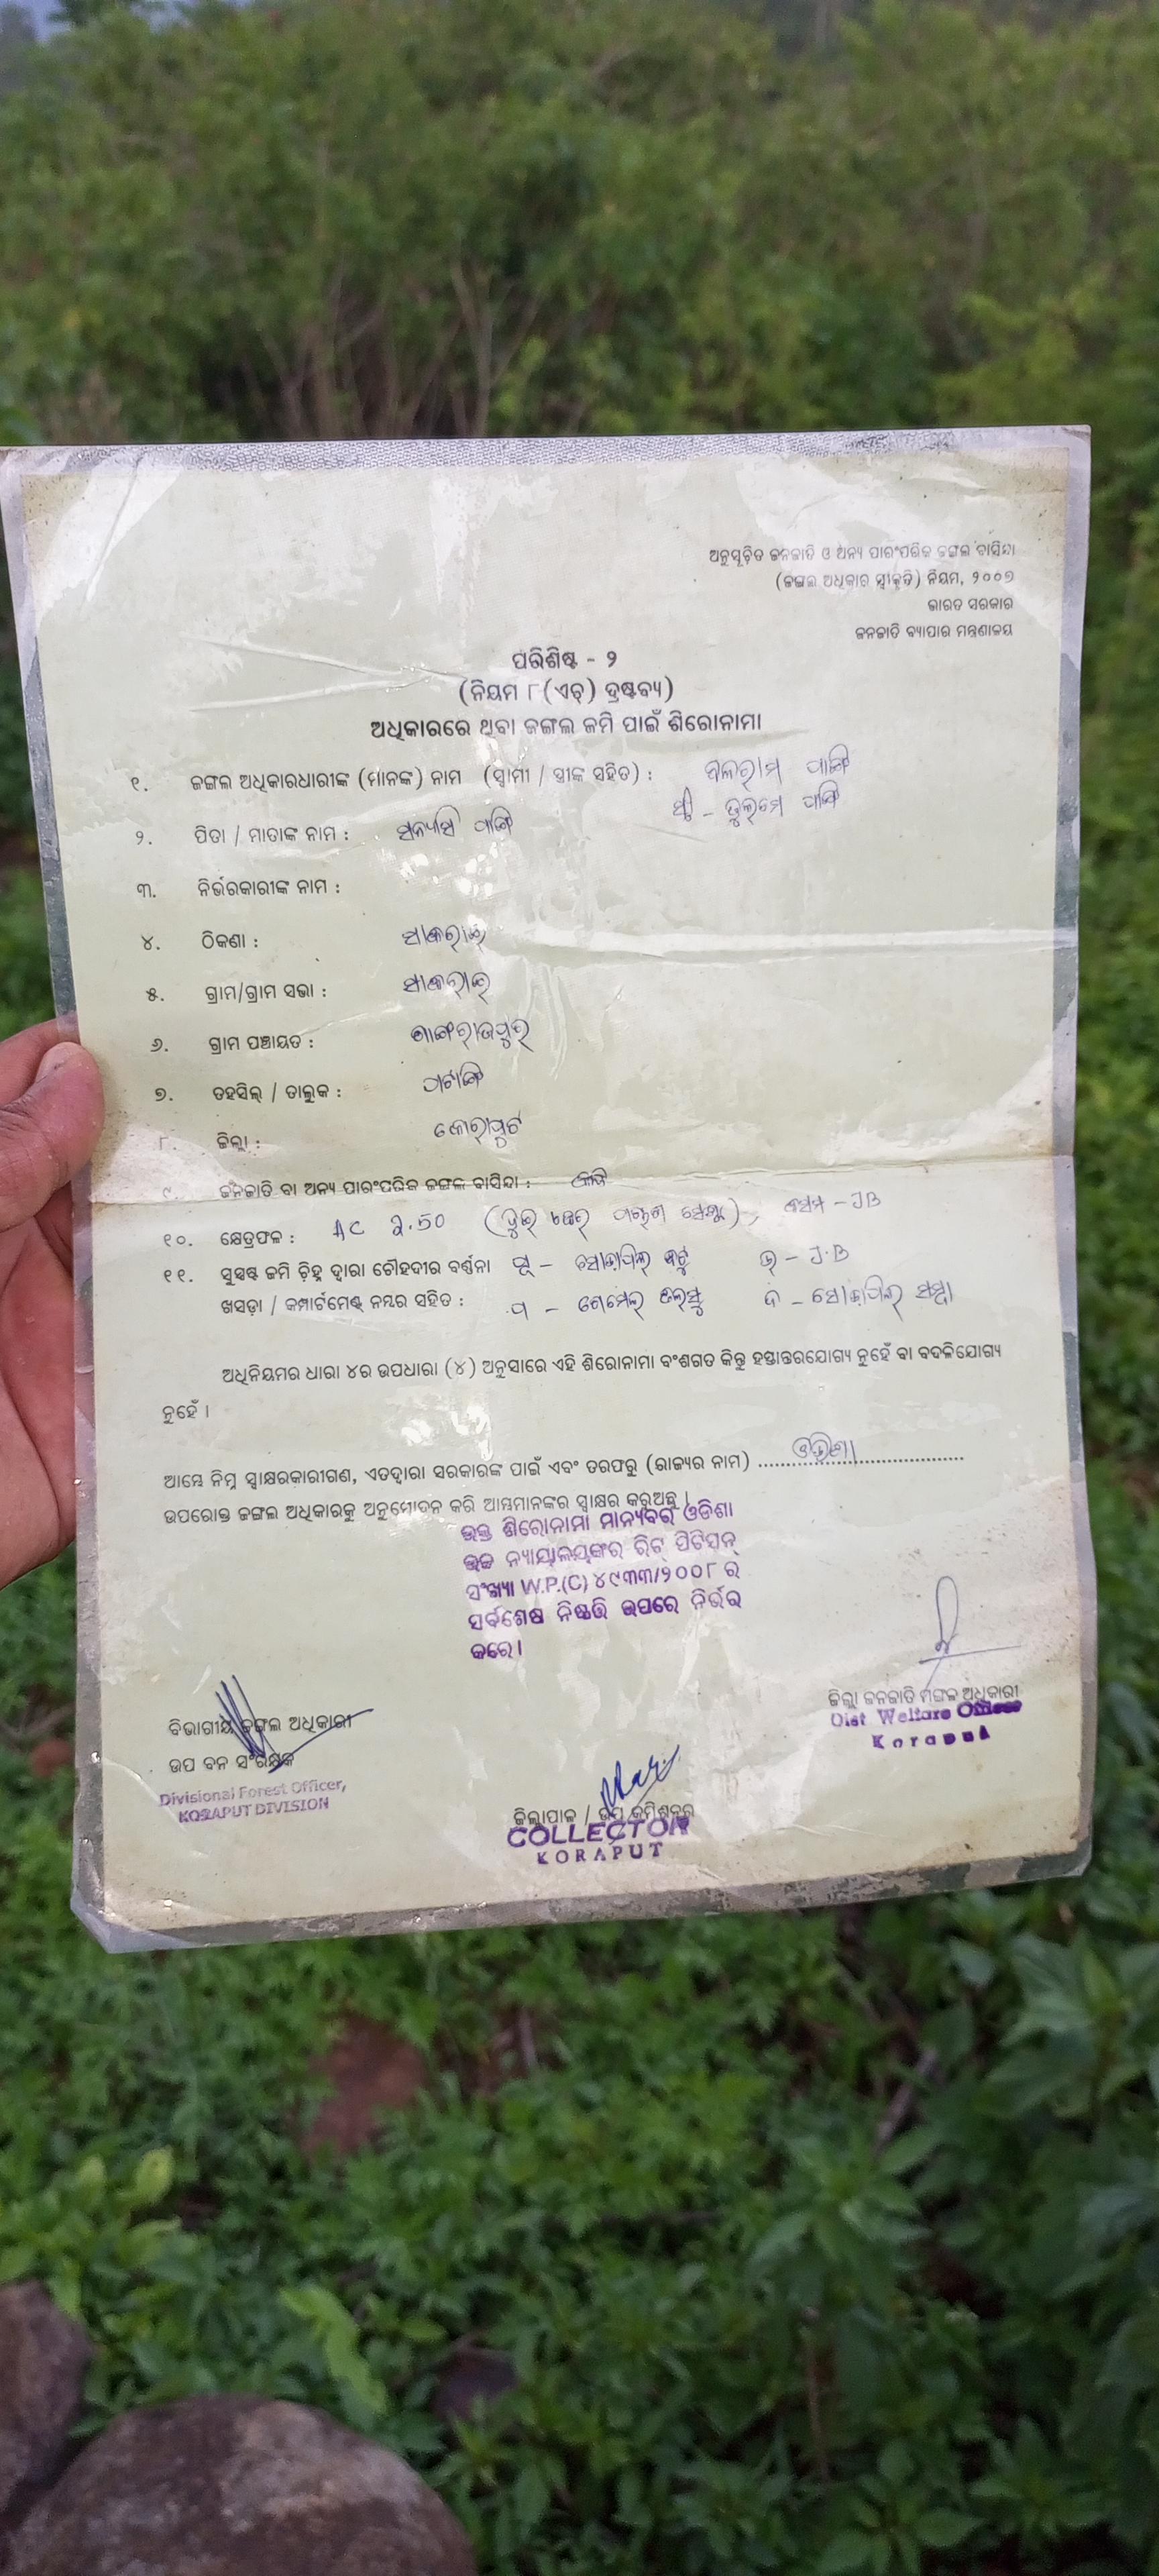 ଅନୁସୂଚିତ ଜନଜାତି ଓ ଅନ୍ୟ ପାରଂପରିକ ଜଙ୍ଗଲ ବାସିନ୍ଦା
(ଜଙ୍ଗଲ ଅଧିକାର ସ୍ୱୀକୃତି) ନିୟମ, ୨୦୦୭
ଭାରତ ସରକାର
ଜନଜାତି ବ୍ୟାପାର ମନ୍ତ୍ରଣାଳୟ
ପରିଶିଷ୍ଟ - ୨
(ନିୟମ ୮(ଏଚ୍) ଦ୍ରଷ୍ଟବ୍ୟ)
ଅଧିକାରରେ ଥିବା ଜଙ୍ଗଲ ଜମି ପାଇଁ ଶିରୋନାମା
୧. ଜଙ୍ଗଲ ଅଧିକାରଧାରୀଙ୍କ (ମାନଙ୍କ) ନାମ (ସ୍ୱାମୀ / ସ୍ତ୍ରୀଙ୍କ ସହିତ) : ବଳରାମ ପାଙ୍ଗି
ସ୍ତ୍ରୀ - ପାଙ୍ଗି
୨. ପିତା / ମାତାଙ୍କ ନାମ : ସନ୍ୟାସି ପାଙ୍ଗି
୩. ନିର୍ଭରକାରୀଙ୍କ ନାମ :
୪. ଠିକଣା : ସାକରାଇ
୫. ଗ୍ରାମ/ଗ୍ରାମ ସଭା : ସାକରାଇ
୬. ଗ୍ରାମ ପଞ୍ଚାୟତ :
୭. ତହସିଲ୍ / ତାଲୁକ : ପଟାଙ୍ଗି
୮. ଜିଲ୍ଲା : କୋରାପୁଟ
୯. ଜନଜାତି ବା ଅନ୍ୟ ପାରଂପରିକ ଜଙ୍ଗଲ ବାସିନ୍ଦା :
୧୦. କ୍ଷେତ୍ରଫଳ : AC 2.50 - JB
୧୧. ସୁସ୍ପଷ୍ଟ ଜମି ଚିହ୍ନ ଦ୍ୱାରା ଚୌହଦୀର ବର୍ଣ୍ଣନା ପୂ - ଉ - J.B
ଖସଡ଼ା / କମ୍ପାର୍ଟମେଣ୍ଟ ନମ୍ବର ସହିତ : ପ - ଦ -
ଅଧିନିୟମର ଧାରା ୪ର ଉପଧାରା (୪) ଅନୁସାରେ ଏହି ଶିରୋନାମା ବଂଶଗତ କିନ୍ତୁ ହସ୍ତାନ୍ତରଯୋଗ୍ୟ ନୁହେଁ ବା ବଦଳିଯୋଗ୍ୟ
ନୁହେଁ ।
ଆମ୍ଭେ ନିମ୍ନ ସ୍ୱାକ୍ଷରକାରୀଗଣ, ଏତଦ୍ଦ୍ୱାରା ସରକାରଙ୍କ ପାଇଁ ଏବଂ ତରଫରୁ (ରାଜ୍ୟର ନାମ) ଓଡ଼ିଶା
ଉପରୋକ୍ତ ଜଙ୍ଗଲ ଅଧିକାରକୁ ଅନୁମୋଦନ କରି ଆମ୍ଭମାନଙ୍କର ସ୍ୱାକ୍ଷର କରୁଅଛୁ ।
ଉକ୍ତ ଶିରୋନାମା ମାନ୍ୟବର ଓଡିଶା
ଉଚ୍ଚ ନ୍ୟାୟାଳୟଙ୍କର ରିଟ୍ ପିଟିସନ୍
ସଂଖ୍ୟା W.P.(C) ୪୯୩୩/୨୦୦୮ ର
ସର୍ବଶେଷ ନିଷ୍ପତ୍ତି ଉପରେ ନିର୍ଭର
କରେ।
ଜିଲ୍ଲା ଜନଜାତି ମଙ୍ଗଳ ଅଧିକାରୀ
Dist Welfare Officer
Koraput
ବିଭାଗୀୟ ଜଙ୍ଗଲ ଅଧିକାରୀ
ଉପ ବନ ସଂରକ୍ଷକ
Divisional Forest Officer,
KORAPUT DIVISION
ଜିଲ୍ଲାପାଳ / ଉପ କମିଶନର
COLLECTOR
KORAPUT